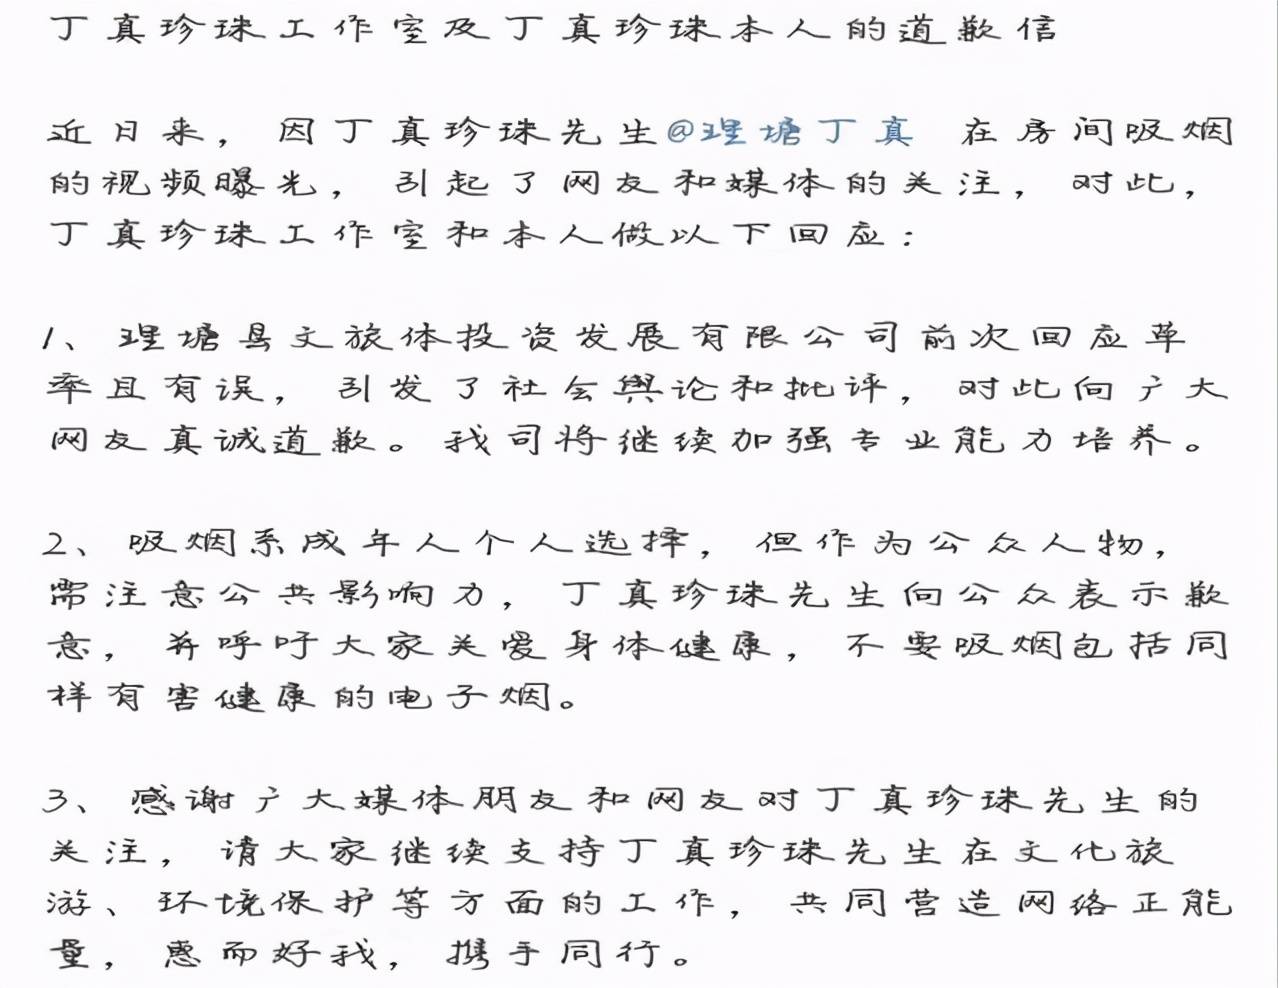 丁真珍珠工作室及丁真珍珠本人的道歉信
近日来，因丁真珍珠先生@理塘丁真 在房间吸烟
的视频曝光，引起了网友和媒体的关注，对此，
丁真珍珠工作室和本人做以下回应：
1、理塘县文旅体投资发展有限公司前次回应草
率且有误，引发了社会舆论和批评，对此向广大
网友真诚道歉。我司将继续加强专业能力培养。
2、吸烟系成年人个人选择，但作为公众人物，
需注意公共影响力，丁真珍珠先生向公众表示歉
意，并呼吁大家关爱身体健康，不要吸烟包括同
样有害健康的电子烟。
3、感谢广大媒体朋友和网友对丁真珍珠先生的
关注，请大家继续支持丁真珍珠先生在文化旅
游、环境保护等方面的工作，共同营造网络正能
量，惠而好我，携手同行。